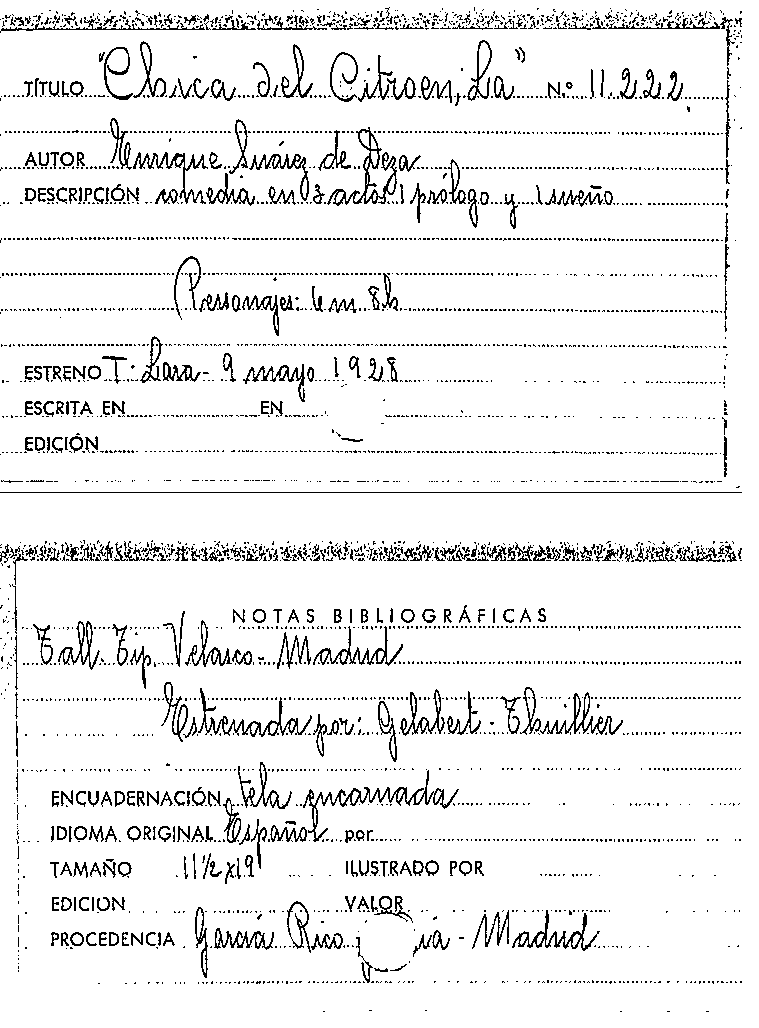 TÍTULO "Chica del Citroen, La" N.º 11.222
AUTOR Enrique Suárez de Deza
DESCRIPCIÓN comedia en 3 actos 1 prólogo y 1 sueño
Personajes: 6 m. 8 h
ESTRENO T. Lara - 9 mayo 1928
ESCRITA EN EN
EDICIÓN
NOTAS BIBLIOGRÁFICAS
Tall. Tip. Velasco - Madrid
Estrenada por: Gelabert - Thuillier
ENCUADERNACIÓN tela encarnada
IDIOMA ORIGINAL Español por
TAMAÑO 11 1/2 x 19 ILUSTRADO POR
EDICION VALOR
PROCEDENCIA García Rico - Madrid